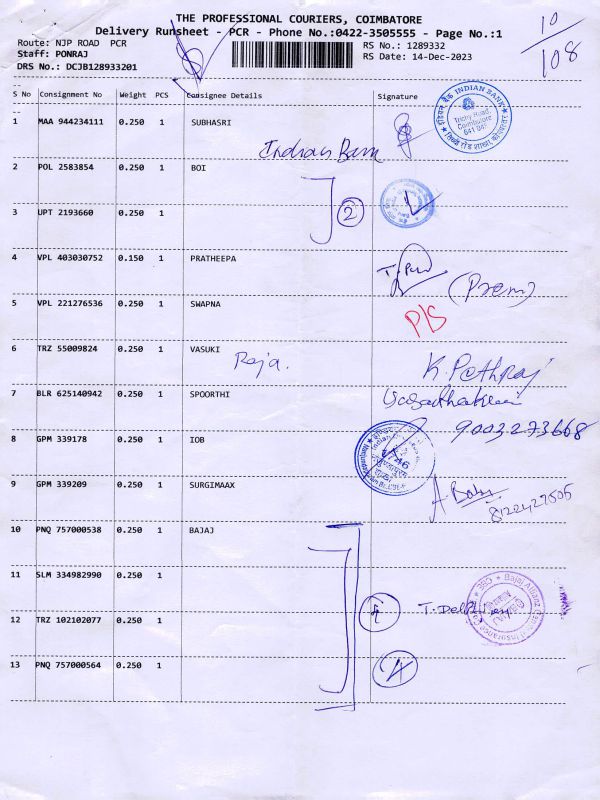 THE PROFESSIONAL COURIERS, COIMBATORE
Delivery Runsheet - PCR - Phone No.:0422-3505555 - Page No.:1
Route: NJP ROAD PCR
RS No.: 1289332
Staff: PONRAJ
RS Date: 14-Dec-2023
DRS No.: DCJB128933201
10
108
S No Consignment No Weight PCS Consignee Details Signature
1 MAA 944234111 0.250 1 SUBHASRI
INDIAN BANK
Trichy Road
Coimbatore
641 045
Indian Bank
2 POL 2583854 0.250 1 BOI
2
3 UPT 2193660 0.250 1
4 VPL 403030752 0.150 1 PRATHEEPA
(Prem)
5 VPL 221276536 0.250 1 SWAPNA
P/S
6 TRZ 55009824 0.250 1 VASUKI
Raja.
K. Pethraj
7 BLR 625140942 0.250 1 SPOORTHI
9003273668
8 GPM 339178 0.250 1 IOB
9 GPM 339209 0.250 1 SURGIMAAX
A. Babu
8122427505
10 PNQ 757000538 0.250 1 BAJAJ
11 SLM 334982990 0.250 1
Bajaj Allianz General Insurance Co
CBE
12 TRZ 102102077 0.250 1
13 PNQ 757000564 0.250 1
4